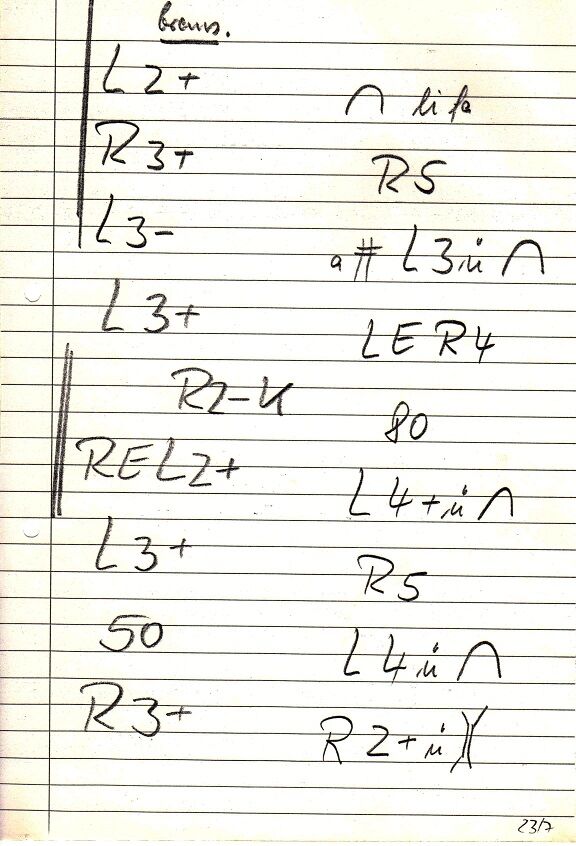 brems.
L2+
R3+
L3-
L3+
R2-K
REL2+
L3+
50
R3+
∩ life
R5
a # L3ü∩
LER4
80
L4+ü∩
R5
L4ü∩
R2+ü)(
23/7